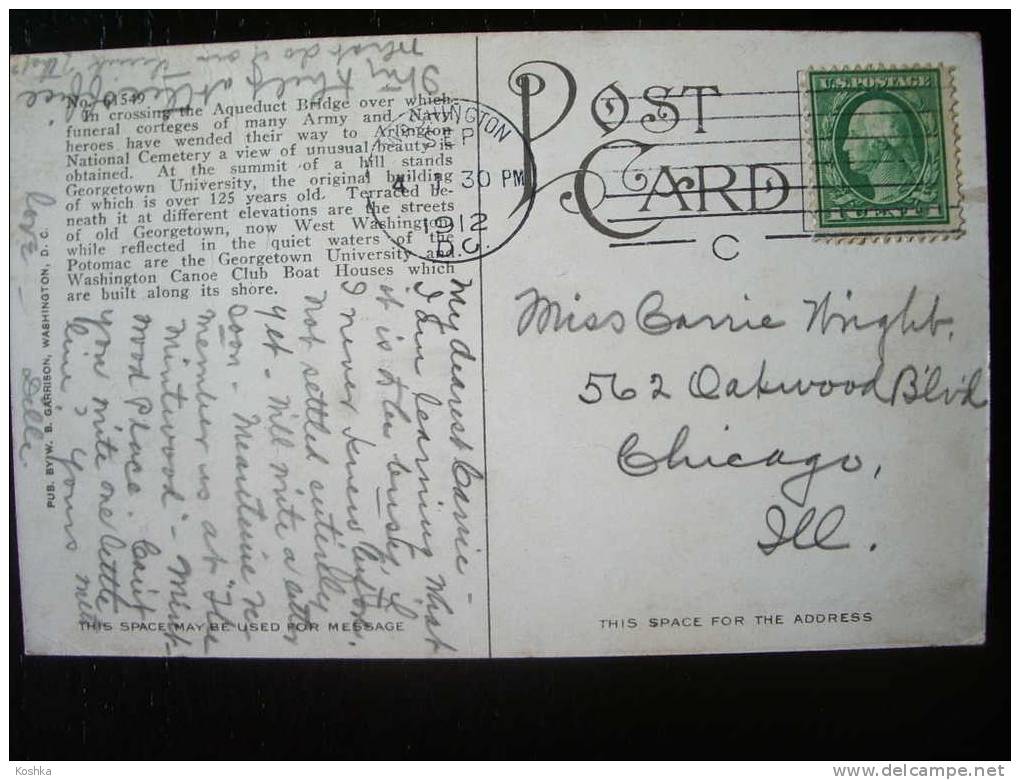 No. 61549
In crossing the Aqueduct Bridge over which
funeral corteges of many Army and Navy
heroes have wended their way to Arlington
National Cemetery a view of unusual beauty is
obtained. At the summit of a hill stands
Georgetown University, the original building
of which is over 125 years old. Terraced be-
neath it at different elevations are the streets
of old Georgetown, now West Washington,
while reflected in the quiet waters of the
Potomac are the Georgetown University and
Washington Canoe Club Boat Houses which
are built along its shore.
PUB. BY W. B. GARRISON, WASHINGTON, D. C.
My dearest Carrie -
I am learning what
it is to be busy. I
I never knew before.
Not settled entirely
yet - Will write a letter
soon - Meantime re-
member us at "The
Mintwood" - Mint-
wood Place. Can't
you write one little
line? Yours with
love -
Still at the office.
What do you think
THIS SPACE MAY BE USED FOR MESSAGE
POST
CARD
WASHINGTON
SEP
4
30 PM
1912
D.C.
C
U.S. POSTAGE
Miss Carrie Wright.
562 Oakwood Blv'd
Chicago,
Ill.
THIS SPACE FOR THE ADDRESS
Koshka
http://www.delcampe.net